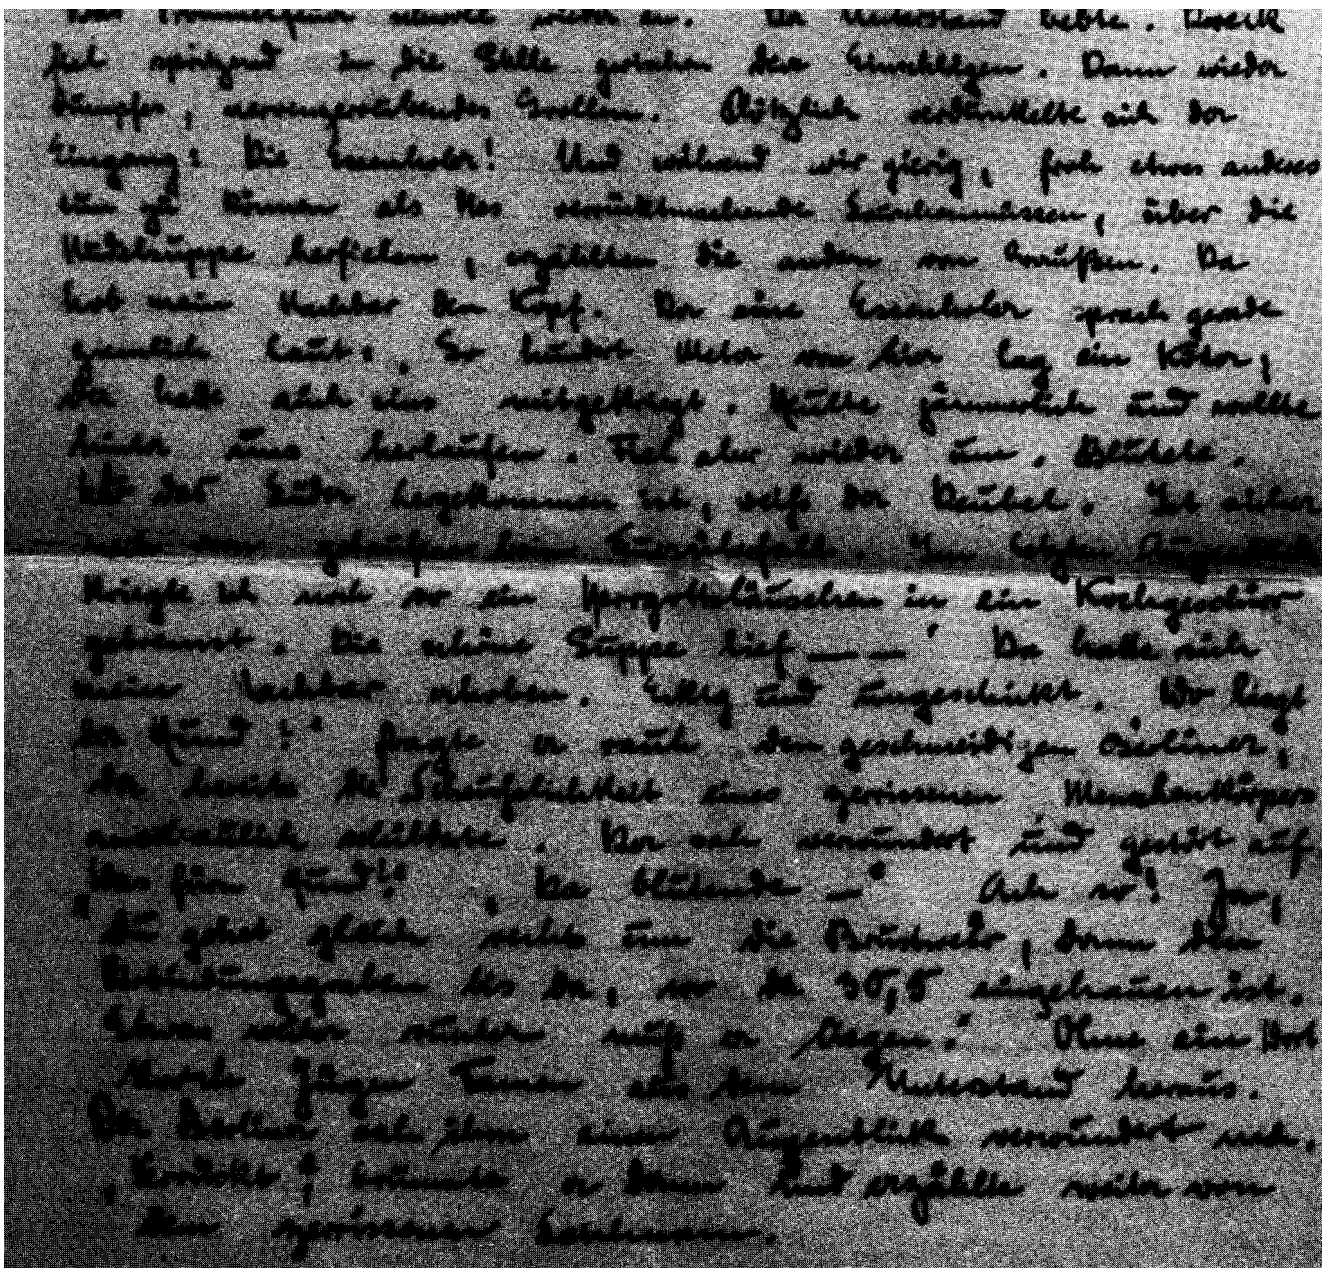 Trommelfeuer schwoll wieder an. Der Unterstand bebte. Dreck
fiel spritzend in die Stille zwischen den Einschlägen. Dann wieder
dumpfes, nervenzerrüttendes Grollen. Plötzlich verdunkelte sich der
Eingang: Die Essenholer! Und während wir gierig, froh etwas anderes
tun zu können als das, über die
Nudelsuppe herfielen, erzählten die andern von draußen. Da
hob mein Nachbar den Kopf. Der eine Essenholer sprach gerade
ziemlich laut: „So hundert Meter von hier lag ein Köter,
der hatte auch eins mitgekriegt. Heulte jämmerlich und wollte
hinter uns herlaufen. Fiel aber wieder um. Blutete.
Wo das Luder hergekommen ist, weiß der Deubel. Ist sicher
Im letzten Augenblick
kriegte ich noch so ein in ein Kochgeschirr
gebrannt. Die schöne Suppe lief — —“ Da hatte sich
mein Nachbar erhoben. Eckig und ungeschickt. „Wo liegt
der Hund?“ fragte er rauh den geschmeidigen Berliner,
der bereits die Scheußlichkeit eines zerrissenen Menschenkörpers
schilderte. Der sah verwundert und gestört auf.
„Was fürn Hund!?“ „Der blutende —“ „Ach so! Ja,
du gehst gleich rechts um die Brustwehr, dann den
Verbindungsgraben bis da, wo die 30,5 eingehauen ist.
Etwas weiter runter muß er liegen.“ Ohne ein Wort
kroch Jürgen aus dem Unterstand heraus.
Der Berliner sah ihm einen Augenblick verwundert nach.
„Verrückt“, brummte er dann und erzählte weiter von
dem zerrissenen Leichnam.